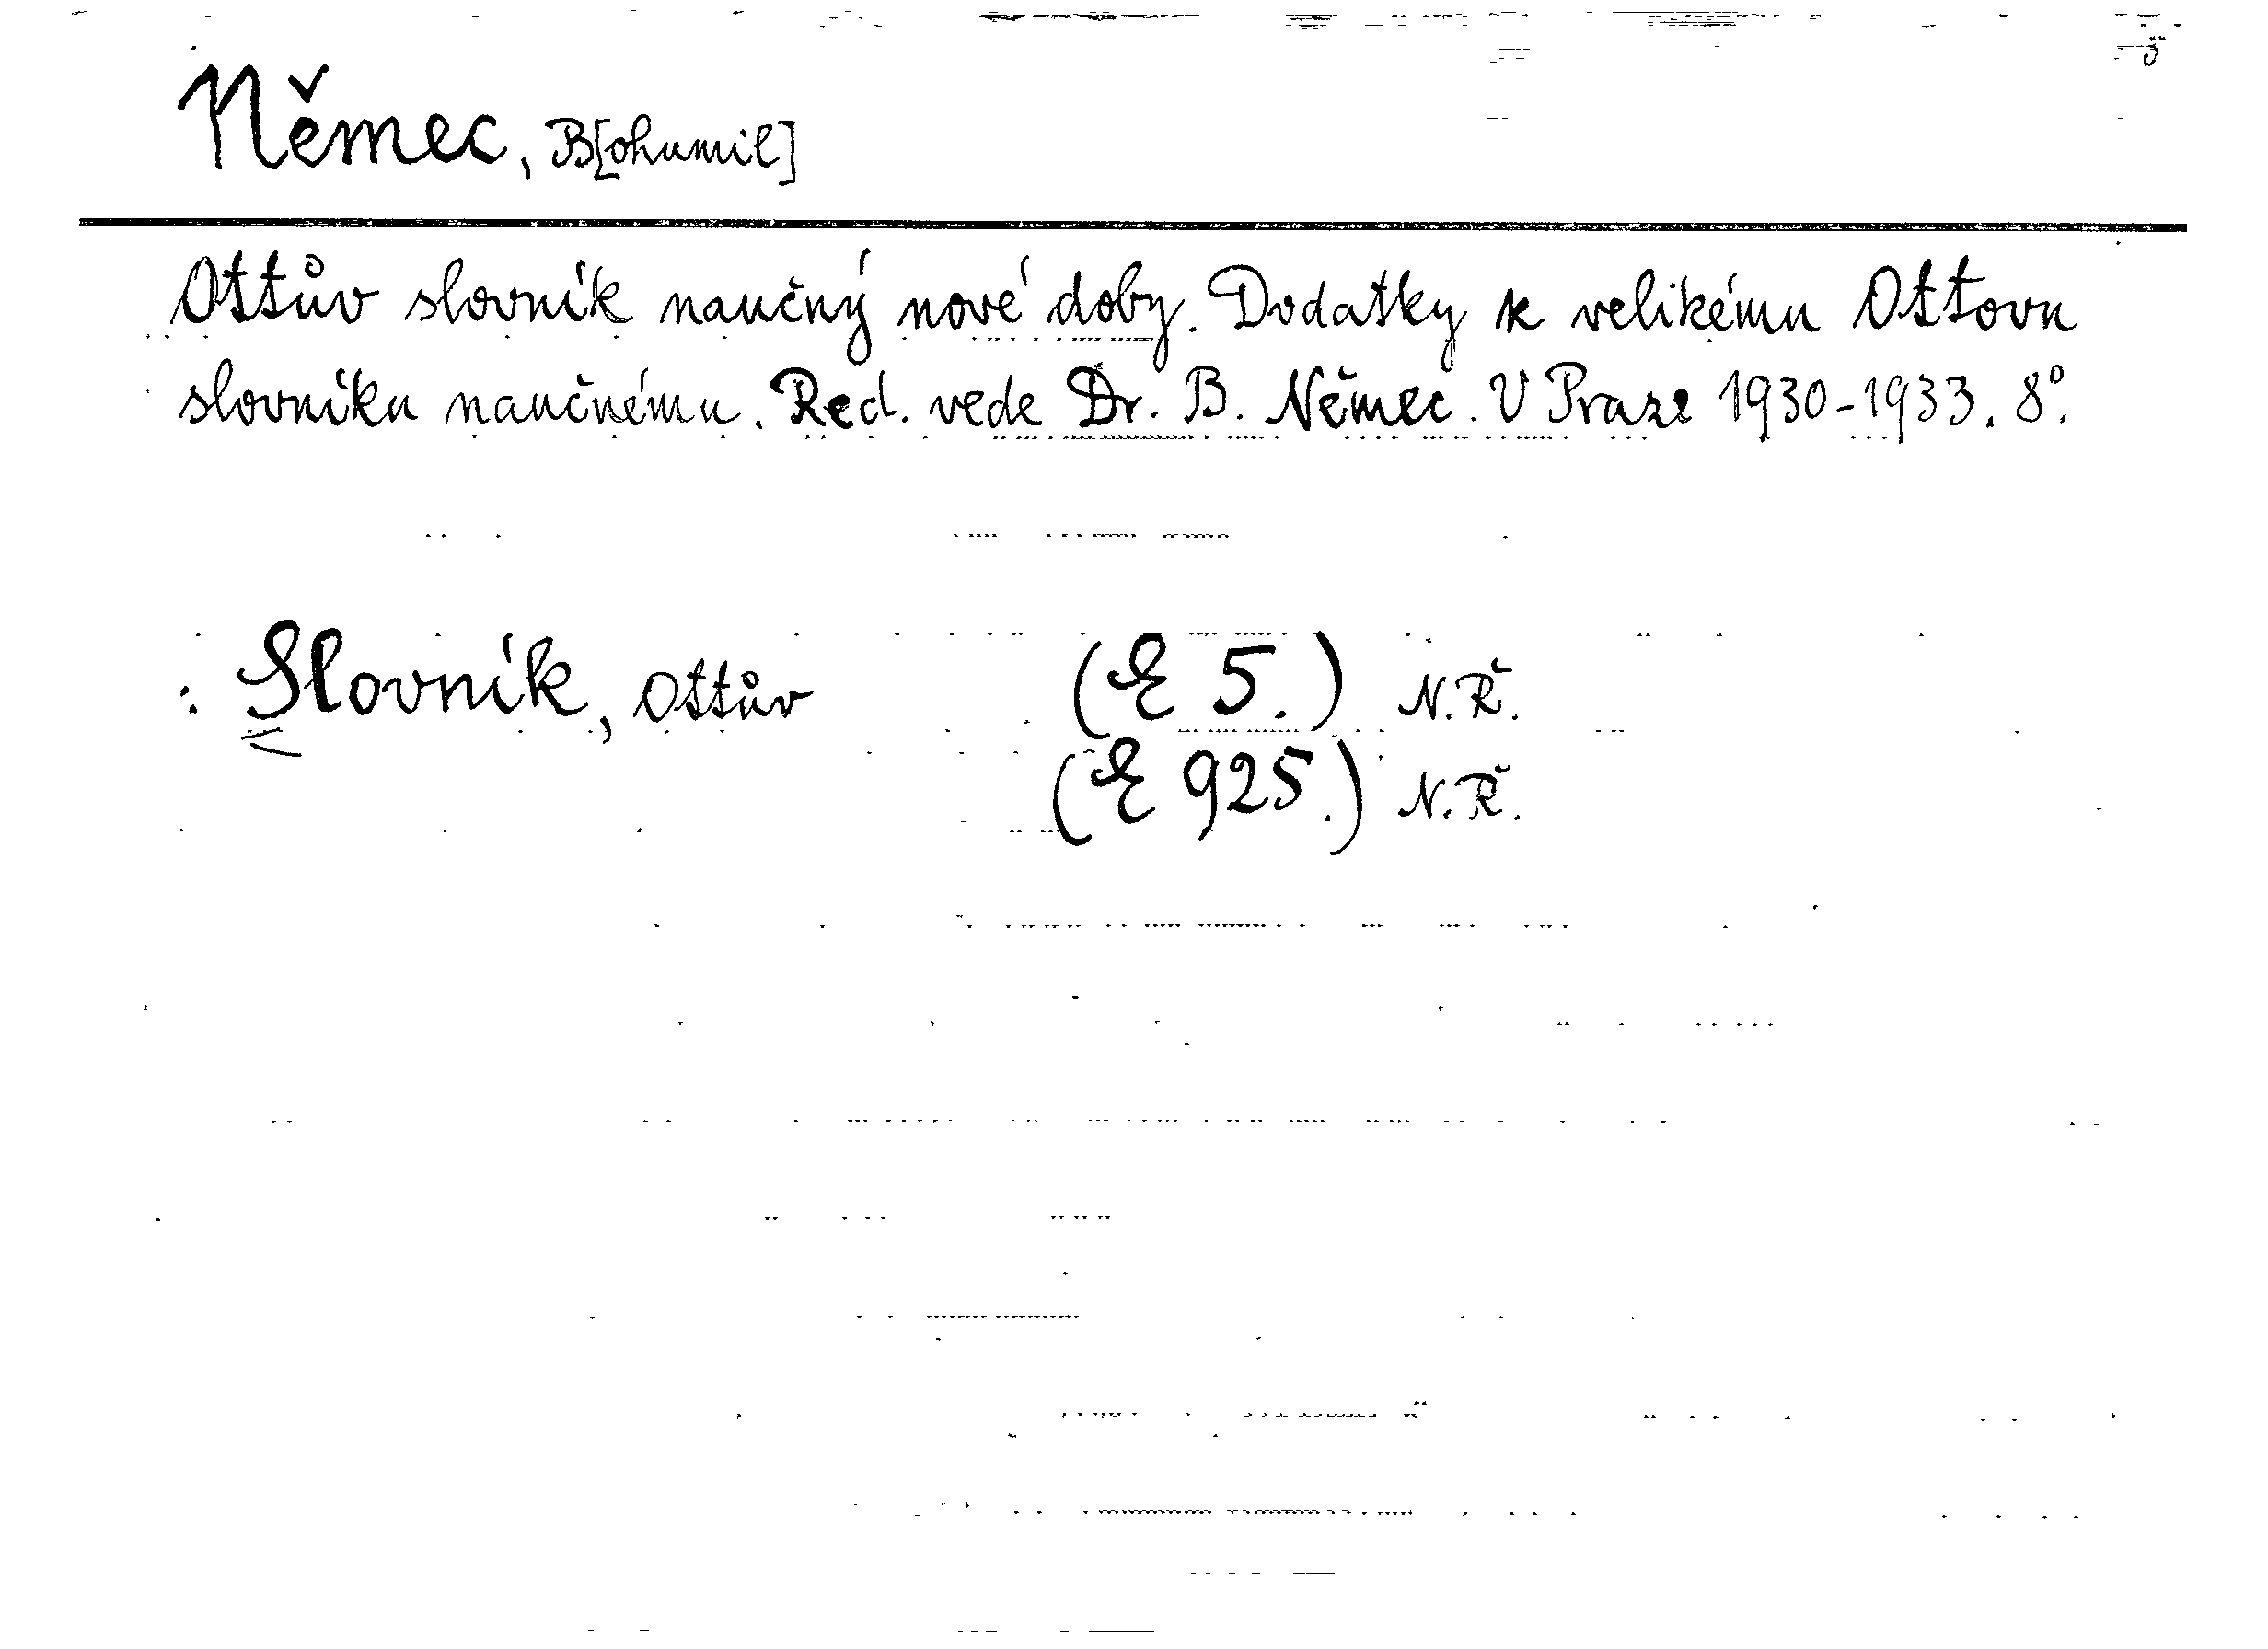 Němec, B[ohumil]
Ottův slovník naučný nové doby. Dodatky k velikému Ottovu
slovníku naučnému. Red. vede Dr. B. Němec. V Praze 1930-1933. 8°.
: Slovník, Ottův (E 5.) N.Ř.
(E 925.) N.Ř.